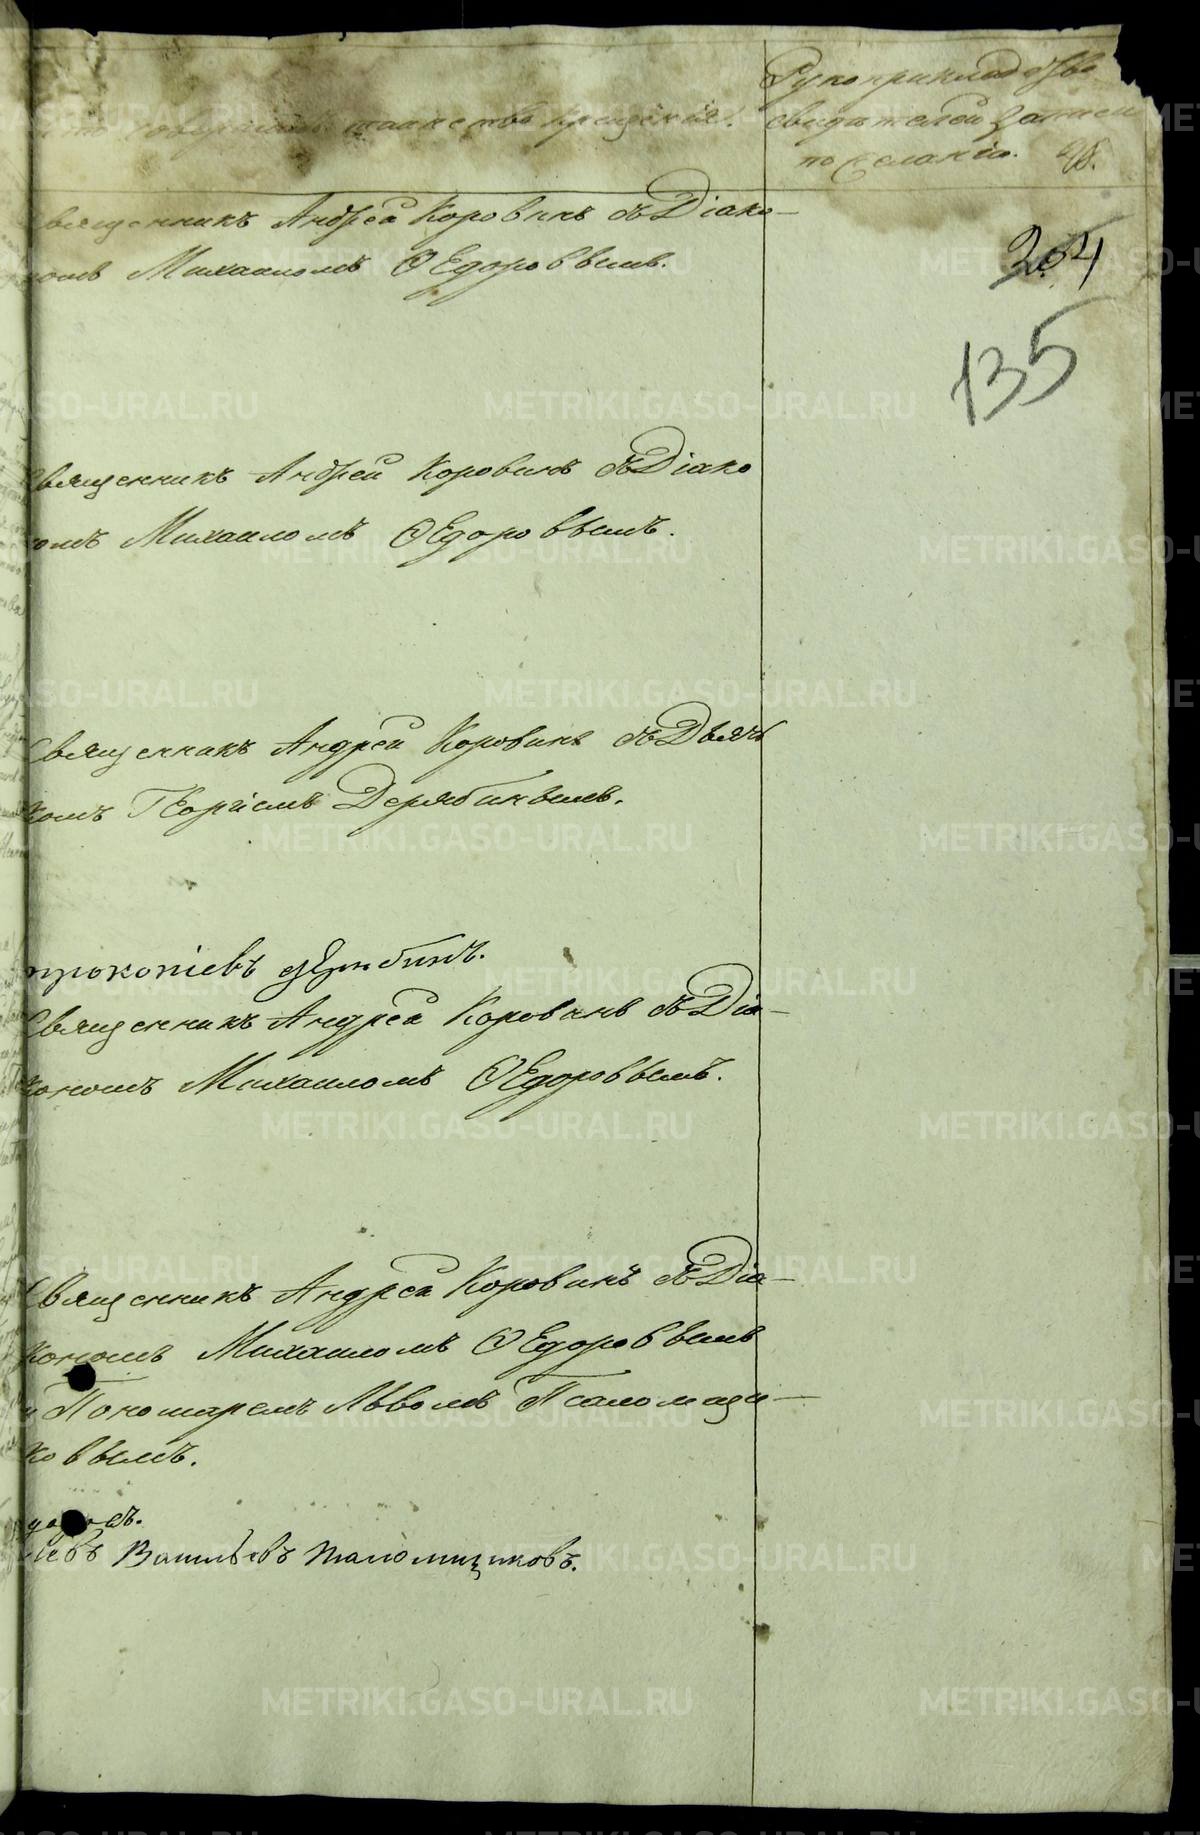 Рукоприкладство
таинство крещенія. свидѣтелей записи
по желанію.
204
135
Священникъ Андрей Коровинъ съ Діако-
номъ Михаиломъ Ѳедоровымъ.
Священникъ Андрей Коровинъ съ Діако
номъ Михаиломъ Ѳедоровымъ.
Священникъ Андрей Коровинъ съ Дьяч
комъ Георгіемъ Дерябинымъ.
прокопіевъ дерябинъ.
Священникъ Андрей Коровинъ съ Діа-
кономъ Михаиломъ Ѳедоровымъ.
Священникъ Андрей Коровинъ съ Діа-
кономъ Михаиломъ Ѳедоровымъ
и Пономаремъ Львомъ Псаломщи-
ковымъ.
Васильевъ Псаломщиковъ.
METRIKI.GASO-URAL.RU